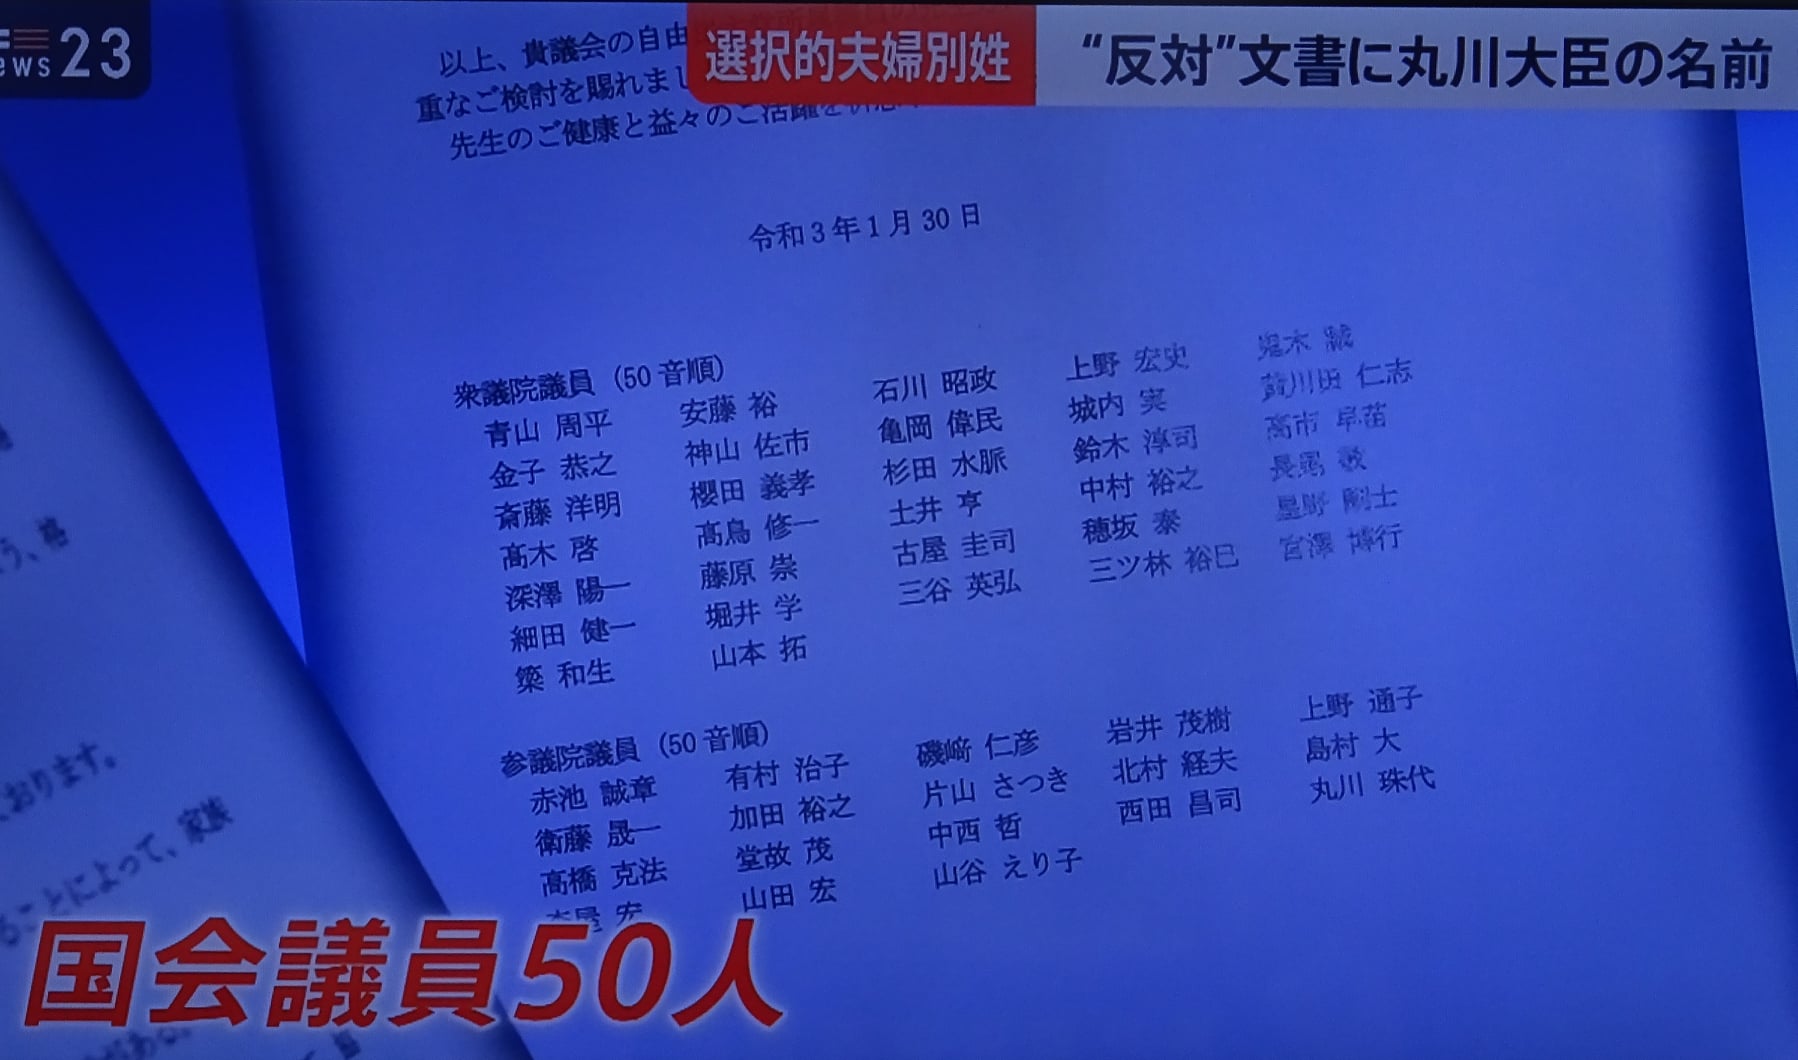 news23
選択的夫婦別姓
“反対”文書に丸川大臣の名前
以上、貴議会の自由
重なご検討を賜れまし
先生のご健康と益々のご活躍を
令和3年1月30日
衆議院議員（50音順）
青山 周平 安藤 裕 石川 昭政 上野 宏史 鬼木 誠
金子 恭之 神山 佐市 亀岡 偉民 城内 実 黄川田 仁志
斎藤 洋明 櫻田 義孝 杉田 水脈 鈴木 淳司 高市 早苗
髙木 啓 髙鳥 修一 土井 亨 中村 裕之 長尾 敬
深澤 陽一 藤原 崇 古屋 圭司 穂坂 泰 星野 剛士
細田 健一 堀井 学 三谷 英弘 三ツ林 裕巳 宮澤 博行
簗 和生 山本 拓
参議院議員（50音順）
赤池 誠章 有村 治子 磯﨑 仁彦 岩井 茂樹 上野 通子
衛藤 晟一 加田 裕之 片山 さつき 北村 経夫 島村 大
高橋 克法 堂故 茂 中西 哲 西田 昌司 丸川 珠代
森屋 宏 山田 宏 山谷 えり子
国会議員50人
う、
おります。
ることによって、家族